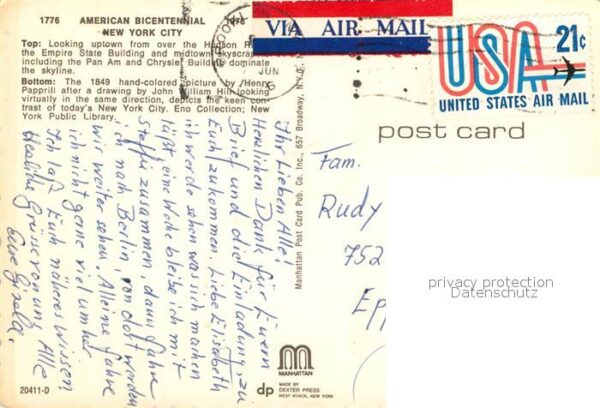 1776 AMERICAN BICENTENNIAL 1976
NEW YORK CITY
Top: Looking uptown from over the Hudson
the Empire State Building and midtown skyscrapers
including the Pan Am and Chrysler Buildings dominate
the skyline.
Bottom: The 1849 hand-colored picture by Henry
Papprill after a drawing by John William Hill looking
virtually in the same direction, depicts the keen con-
trast of today's New York City. Eno Collection; New
York Public Library.
VIA AIR MAIL
JUN
USA 21c
UNITED STATES AIR MAIL
post card
Manhattan Post Card Pub. Co. Inc., 657 Broadway, N.Y.
Ihr Lieben Alle!
Herzlichen Dank für Euern
Brief und die Einladung, zu
Euch zukommen. Liebe Elisabeth
ich werde sehen was sich machen
läßt eine Woche bleibe ich mit
Steffi zusammen, dann fahre
ich nach Berlin, von dort werden
wir weiter sehen. Alleine fahre
ich nicht gerne viel umher
Ich laß Euch näheres wissen!
Herzliche Grüsse von uns Alle
Eure
Fam.
Rudy
752
Epp
privacy protection
Datenschutz
MANHATTAN
dp MADE BY
DEXTER PRESS
WEST NYACK, NEW YORK
20411-D